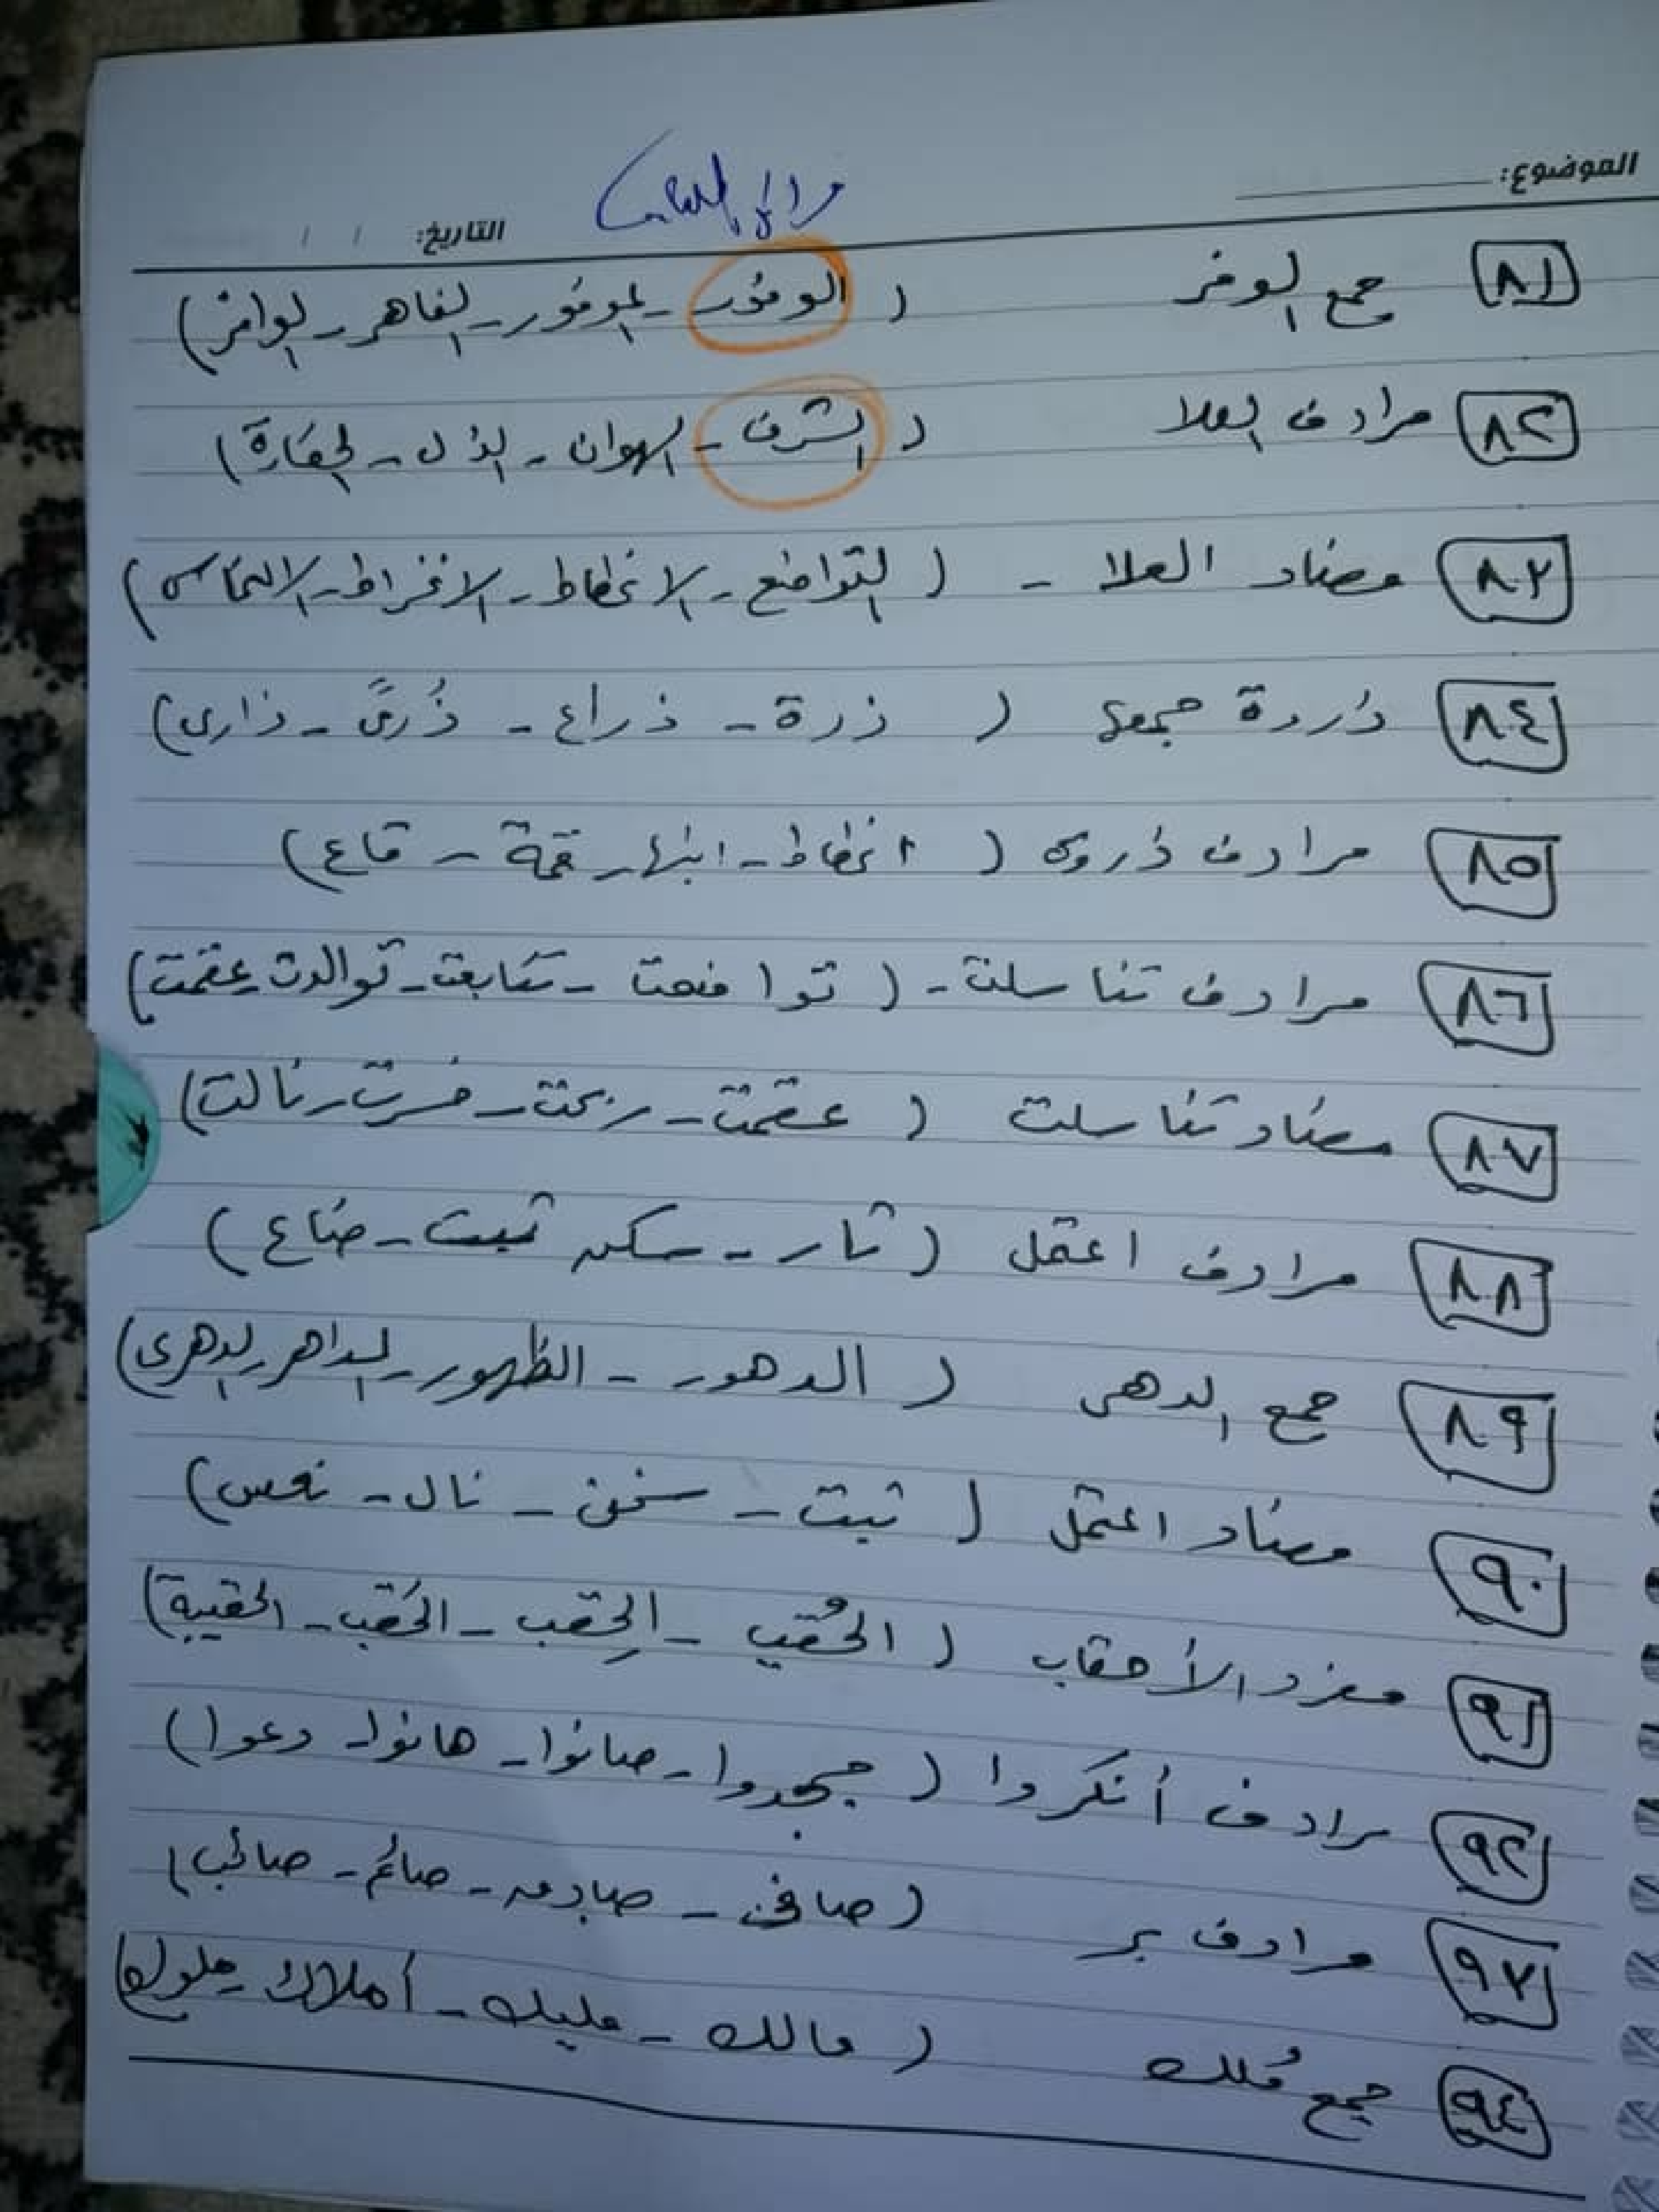 الموضوع:
التاريخ: / /
٨١ جمع الوفر ( الوفور - الموفور - الفاهر - الوافر )
٨٢ مرادف العلا ( الشرف - الهوان - الذل - الحقارة )
٨٣ مضاد العلا - ( التواضع - الانحطاط - الانخراط - الانتكاس )
٨٤ ذروة جمعها ( ذرة - ذراع - ذُرىً - ذارى )
٨٥ مرادف ذروة ( انحطاط - انهار - قمة - قاع )
٨٦ مرادف تناسلت - ( تواضعت - تتابعت - توالدت - عقمت )
٨٧ مضاد تناسلت ( عقمت - ربحت - خسرت - نالت )
٨٨ مرادف اعتمل ( ثار - سكن - ثبت - ضاع )
٨٩ جمع الدهر ( الدهور - الظهور - الداهر - الدهرى )
٩٠ مضاد اعتمل ( ثبت - سخن - نال - نعس )
٩١ مفرد الأحقاب ( الحُقب - الحِقب - الحَقب - الحقيبة )
٩٢ مرادف أنكروا ( جحدوا - صانوا - هانوا - دعوا )
٩٣ مرادف بر ( صافى - صادق - صائم - صائب )
٩٤ جمع مُلك ( مالك - مليك - أملاك - ملوك )